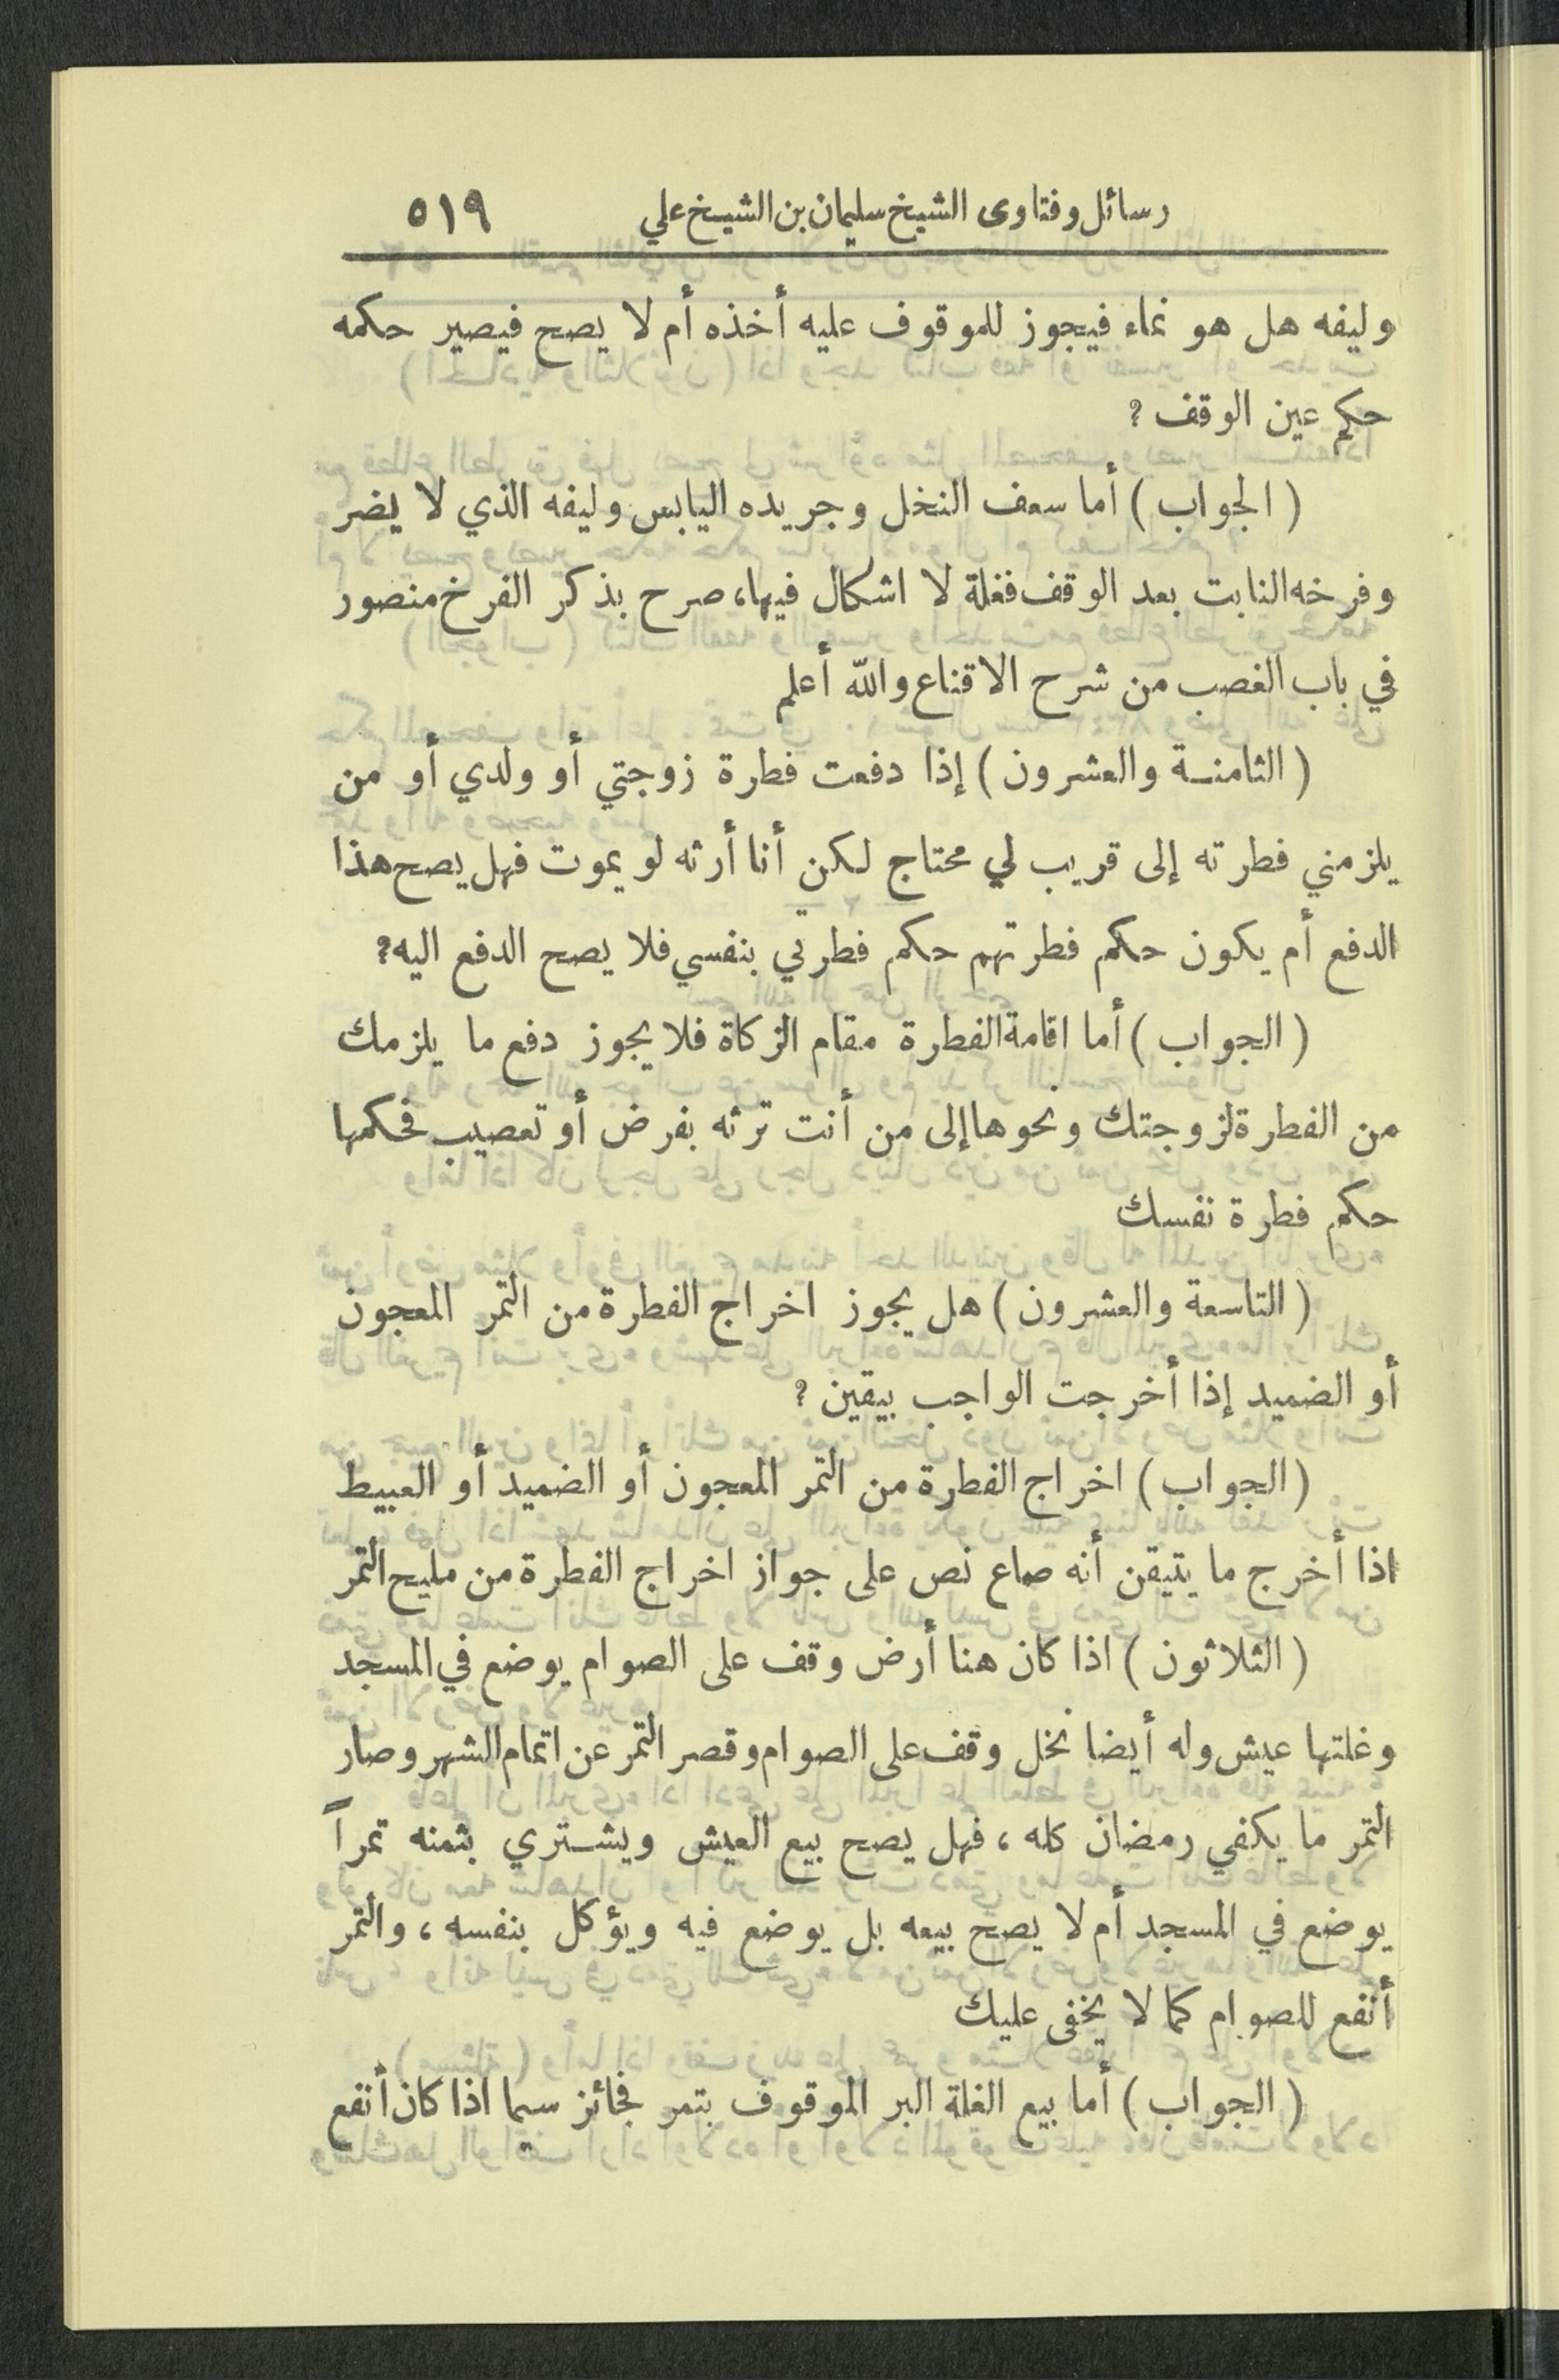 رسائل وفتاوى الشيخ سليمان بن الشيخ علي ٥١٩
وليفه هل هو نماء فيجوز للموقوف عليه أخذه أم لا يصح فيصير حكمه
حكم عين الوقف ؟
( الجواب ) أما سعف النخل وجريده اليابس وليفه الذي لا يضر
وفرخه النابت بعد الوقف فغلة لا اشكال فيها، صرح بذكر الفرخ منصور
في باب الغصب من شرح الاقناع والله أعلم
( الثامنة والعشرون ) إذا دفعت فطرة زوجتي أو ولدي أو من
يلزمني فطرته إلى قريب لي محتاج لكن أنا أرثه لو يموت فهل يصح هذا
الدفع أم يكون حكم فطرتهم حكم فطرتي بنفسي فلا يصح الدفع اليه؟
( الجواب ) أما اقامة الفطرة مقام الزكاة فلا يجوز دفع ما يلزمك
من الفطرة لزوجتك ونحوها إلى من أنت ترثه بفرض أو تعصيب فحكمها
حكم فطرة نفسك
( التاسعة والعشرون ) هل يجوز اخراج الفطرة من التمر المعجون
أو الضميد إذا أخرجت الواجب بيقين ؟
( الجواب ) اخراج الفطرة من التمر المعجون أو الضميد أو العبيط
اذا أخرج ما يتيقن أنه صاع نص على جواز اخراج الفطرة من مليح التمر
( الثلاثون ) اذا كان هنا أرض وقف على الصوام يوضع في المسجد
وغلتها عيش وله أيضا نخل وقف على الصوام وقصر التمر عن اتمام الشهر وصار
التمر ما يكفي رمضان كله ، فهل يصح بيع العيش ويشتري بثمنه تمراً
يوضع في المسجد أم لا يصح بيعه بل يوضع فيه ويؤكل بنفسه ، والتمر
أنفع للصوام كما لا يخفى عليك
( الجواب ) أما بيع الغلة البر الموقوف بتمر فجائز سيما اذا كان أنفع